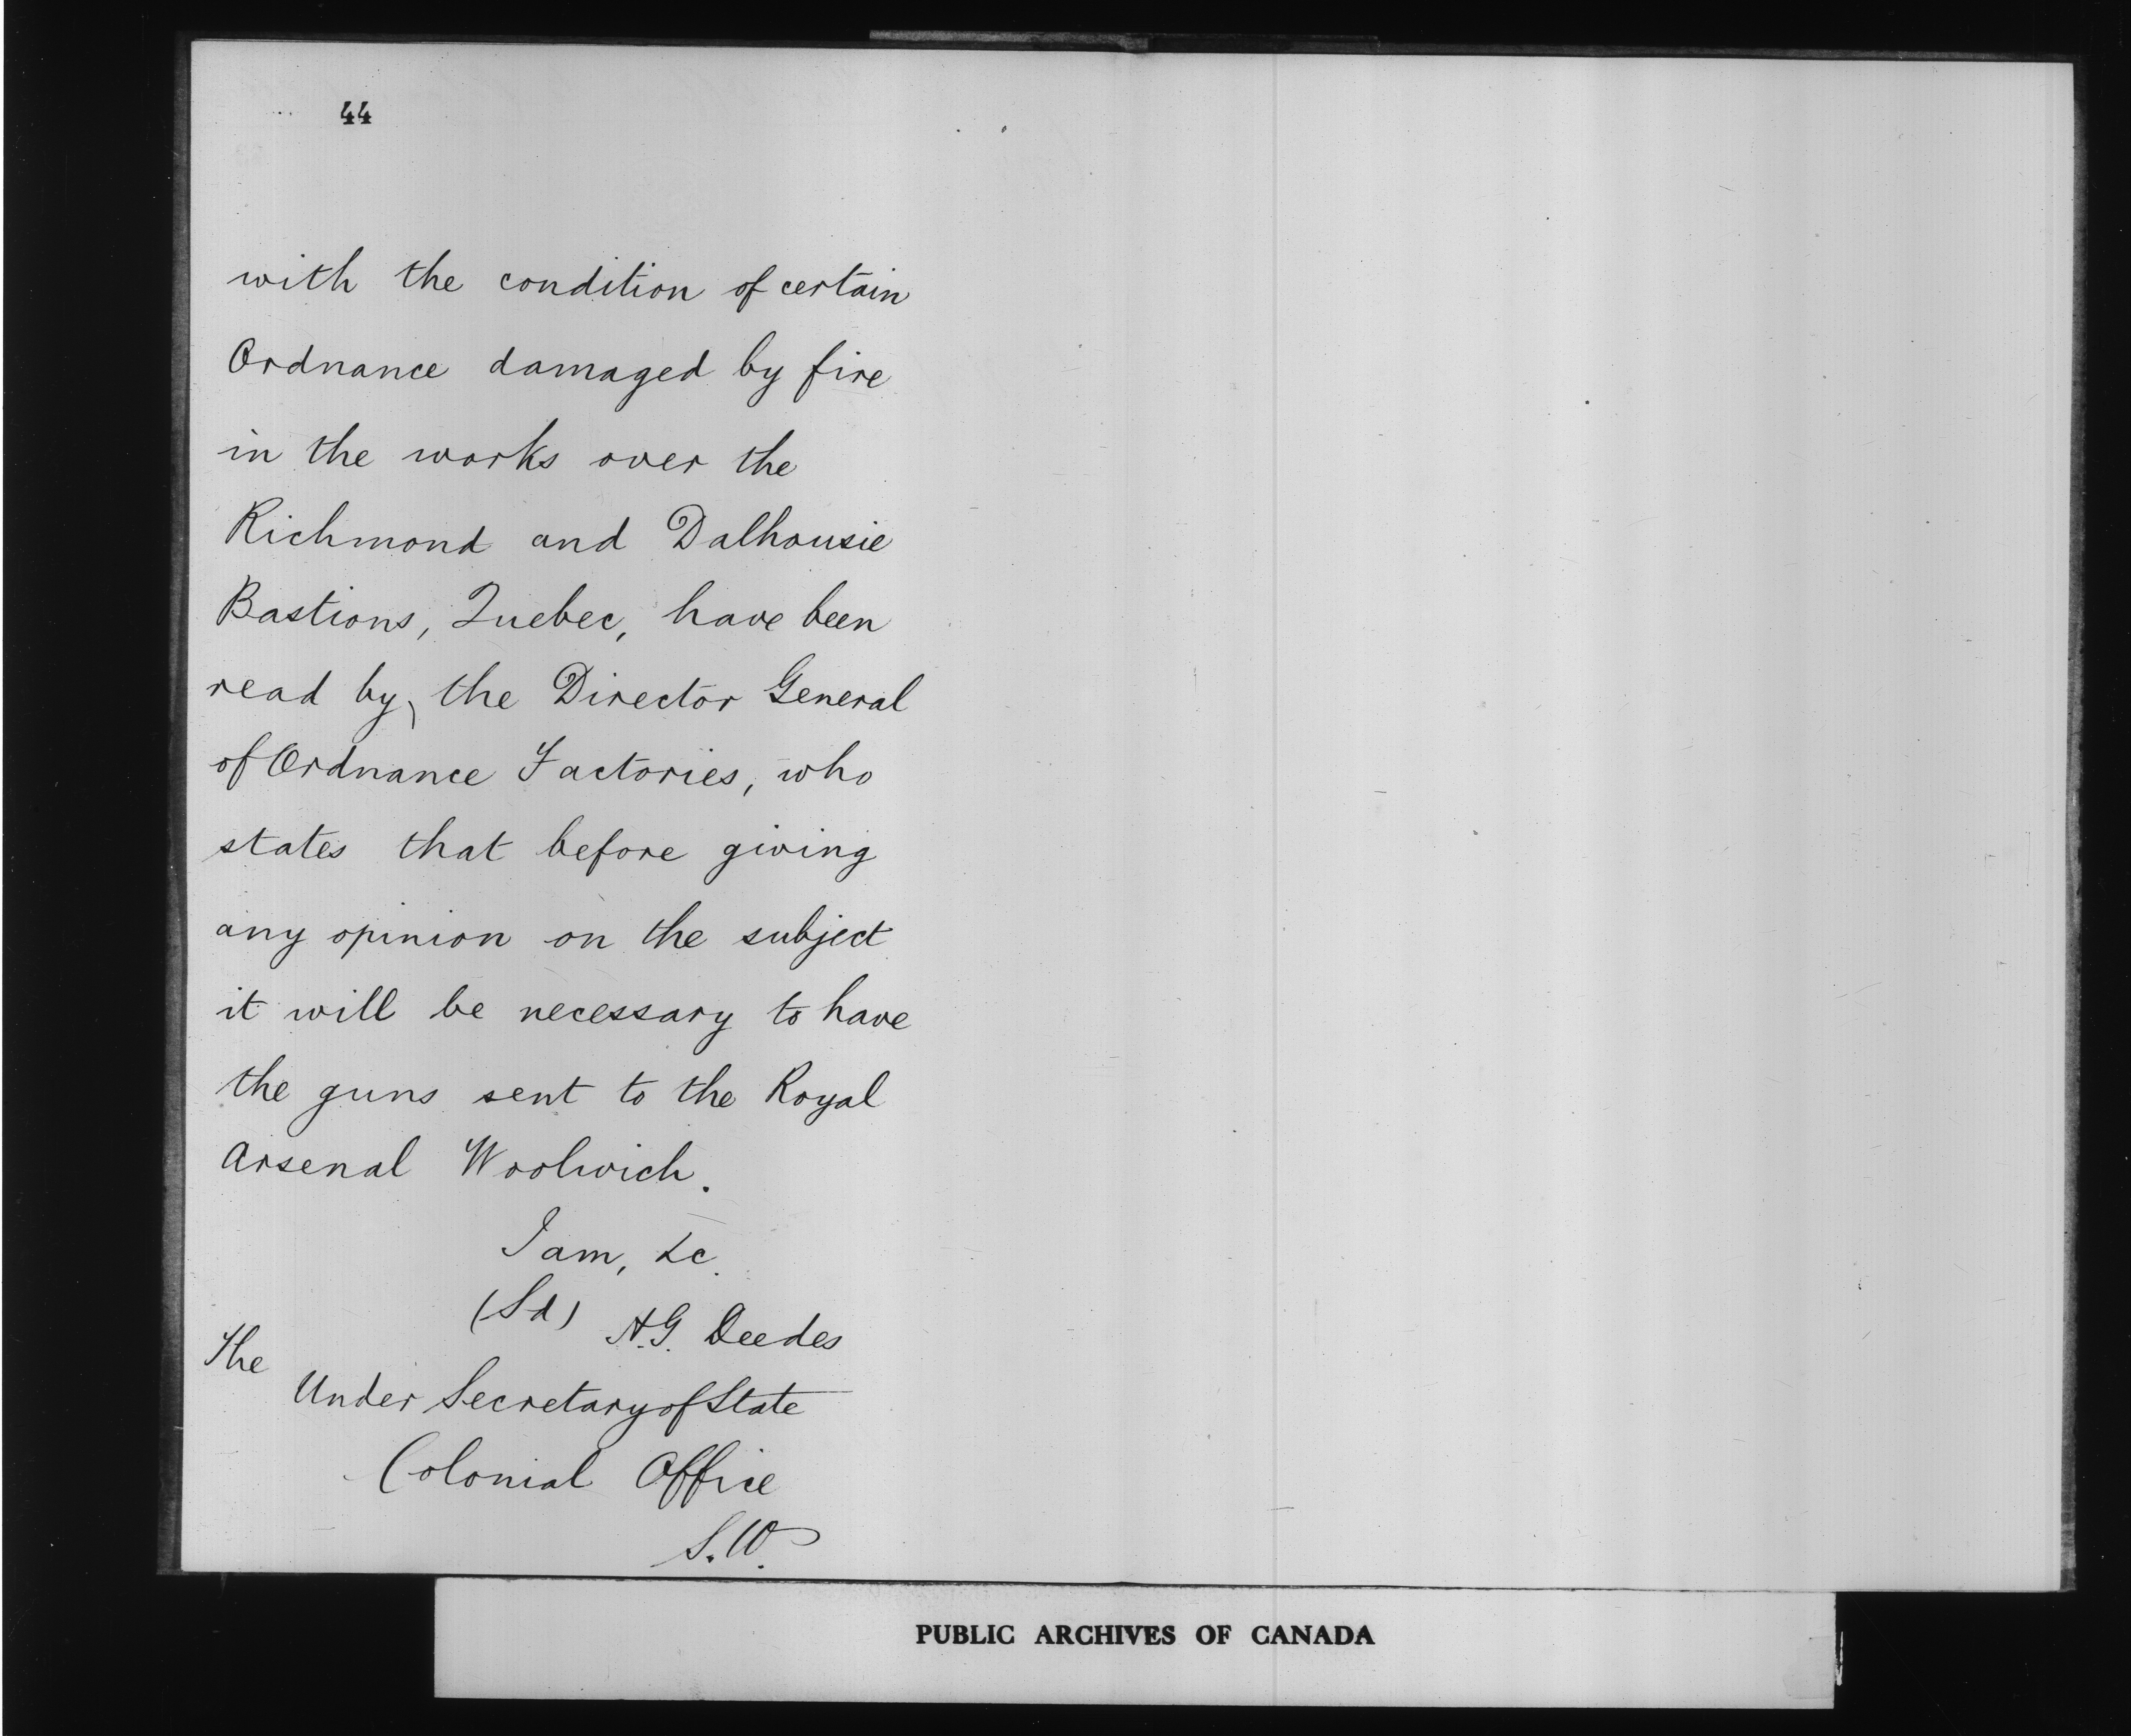 44
with the condition of certain
Ordnance damaged by fire
in the works over the
Richmond and Dalhousie
Bastions, Quebec, have been
read by, the Director General
of Ordnance Factories, who
states that before giving
any opinion on the subject
it will be necessary to have
the guns sent to the Royal
Arsenal Woolwich.
I am, &c.
(Sd) H.G. Deedes
The
Under Secretary of State
Colonial Office
S.W.
PUBLIC ARCHIVES OF CANADA